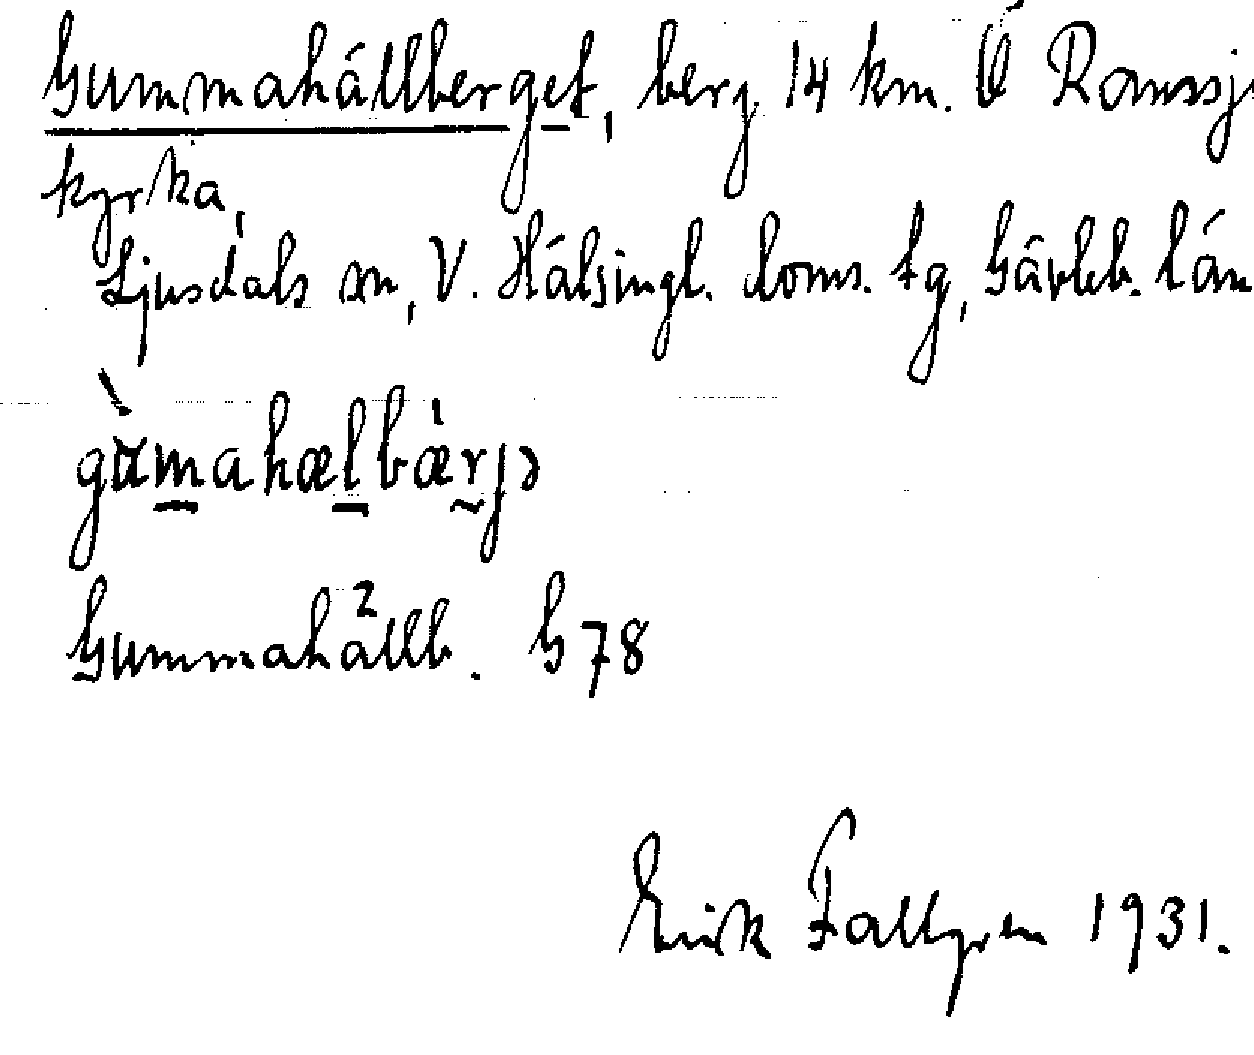 Gummahällberget, berg 14 km. Ö Ramssj
kyrka,
Ljusdals sn, V. Hälsingl. doms. tg, Gävleb. län
Gummahällb. G 78
Erik Fallgren 1931.